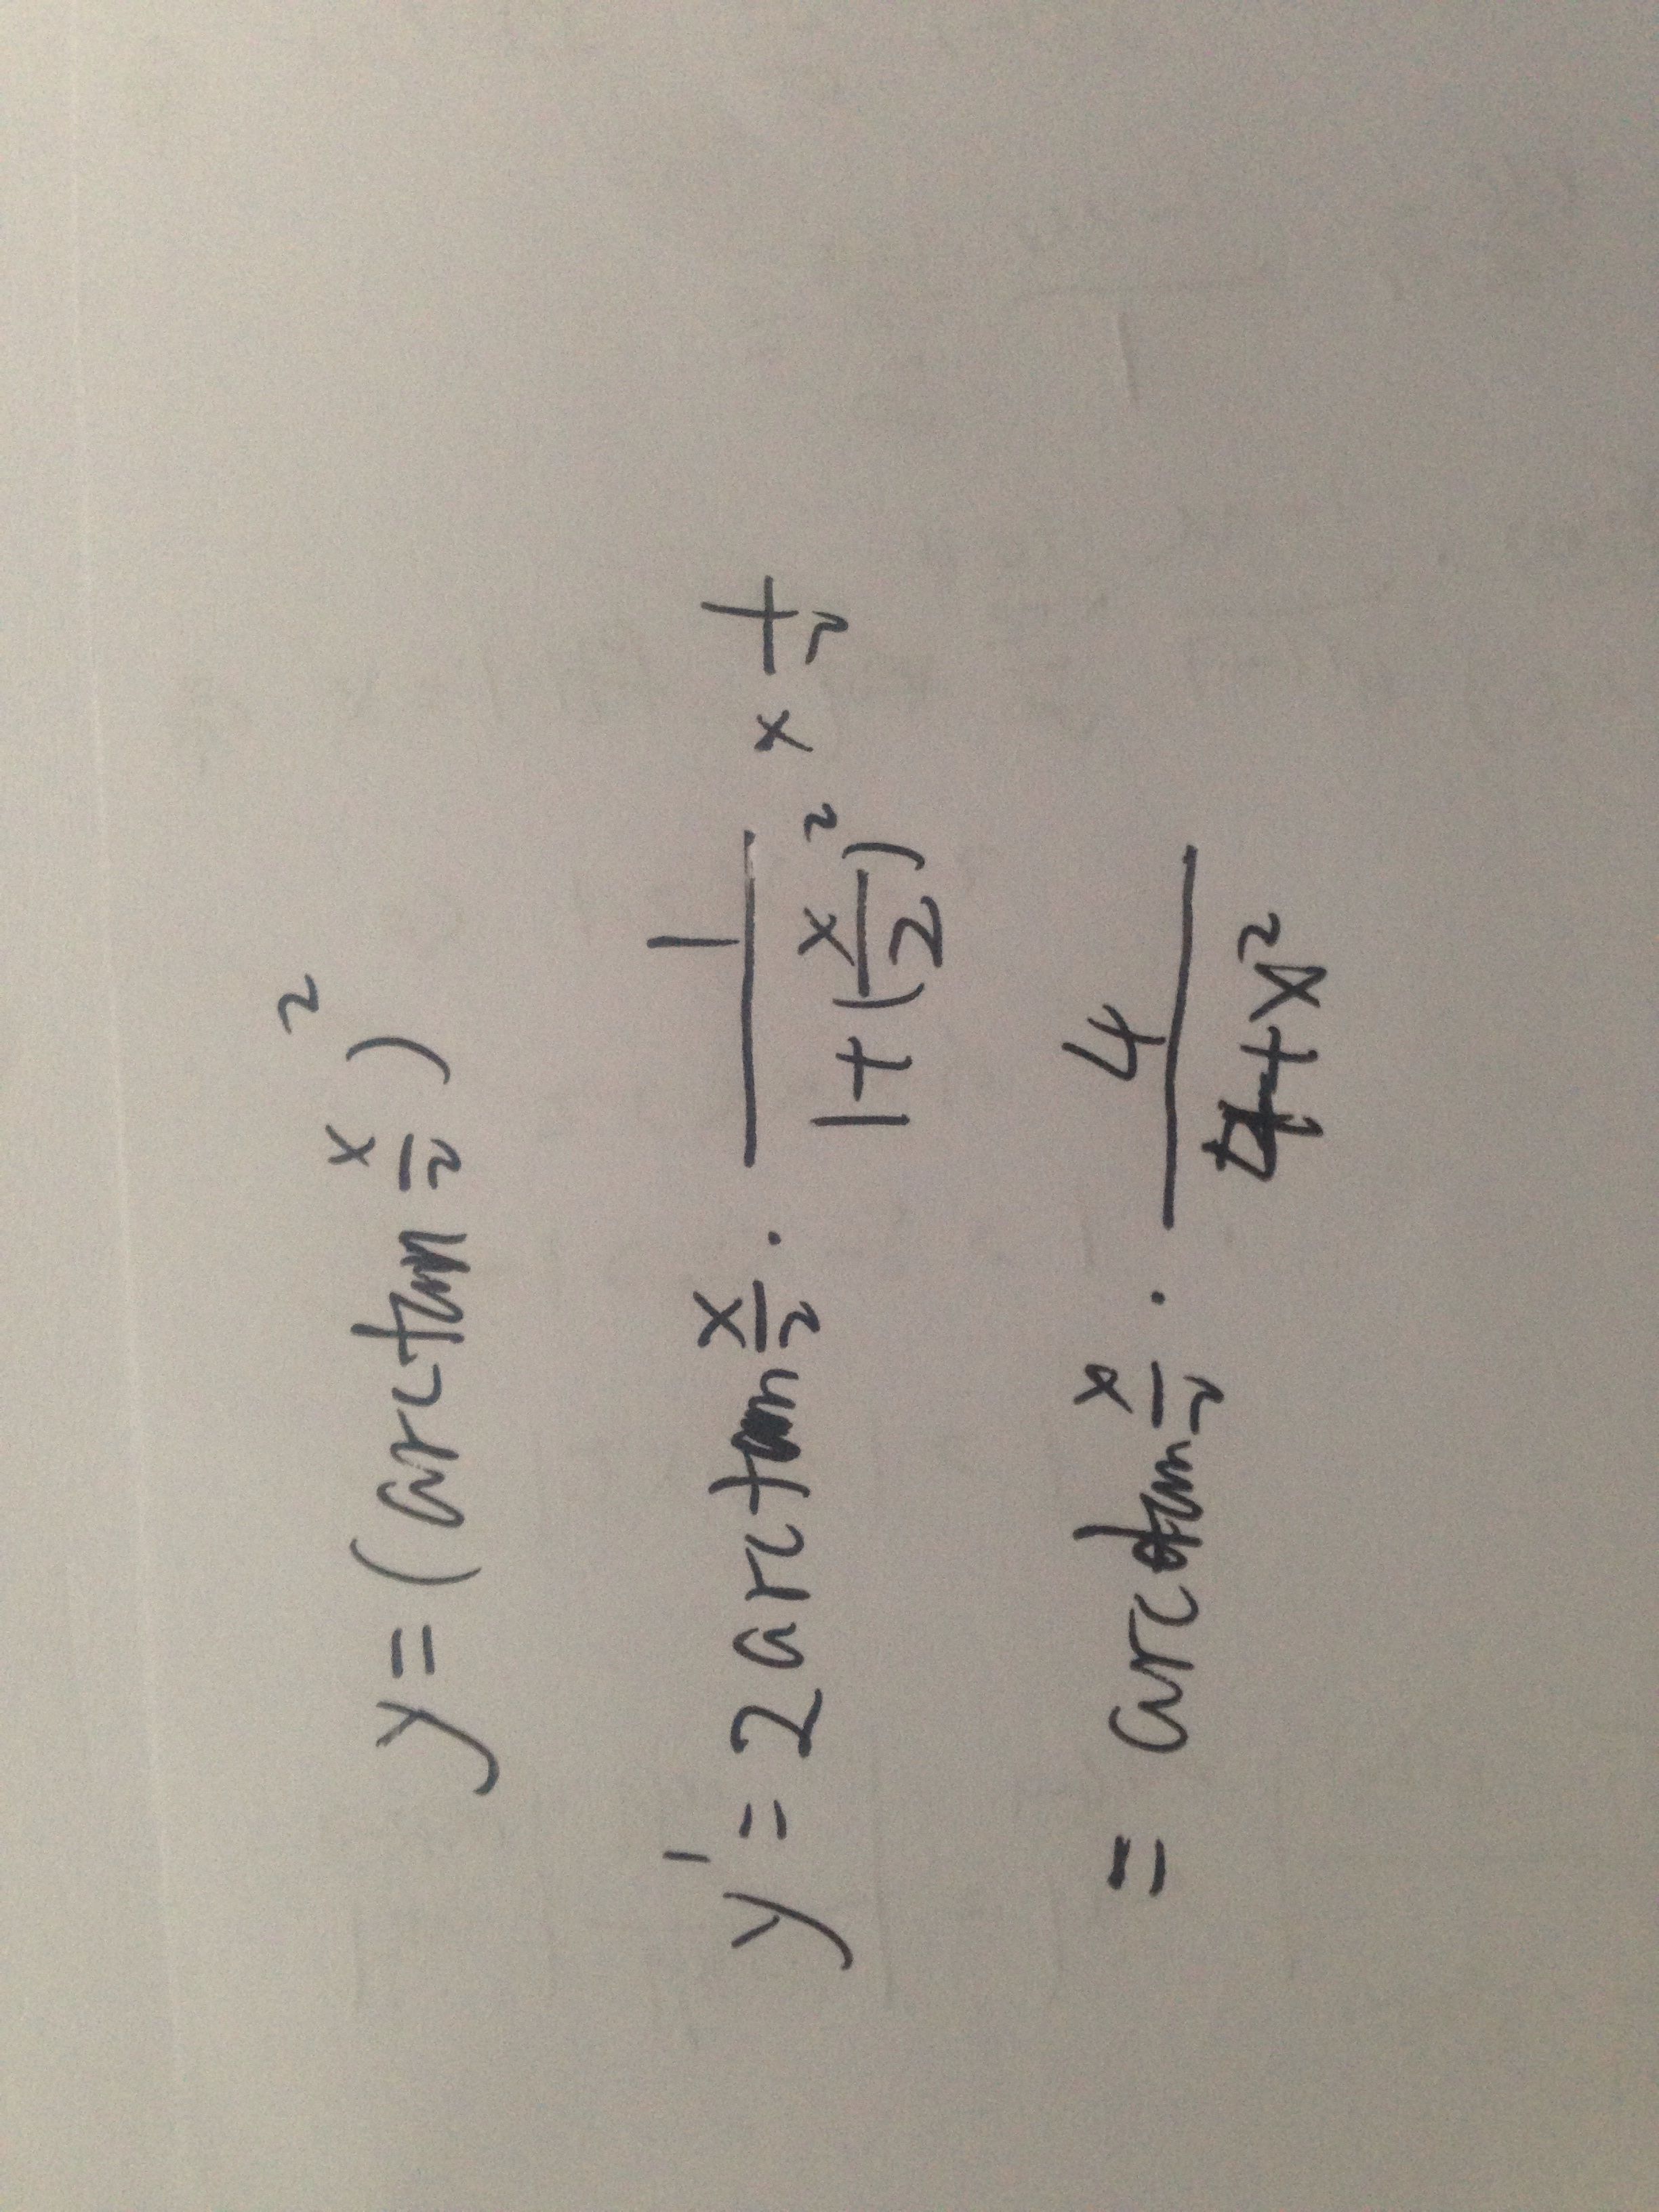 y = (arctan x/2)²
y' = 2 arctan x/2 · 1/(1+(x/2)²) × 1/2
= arctan x/2 · 4/(4+x²)